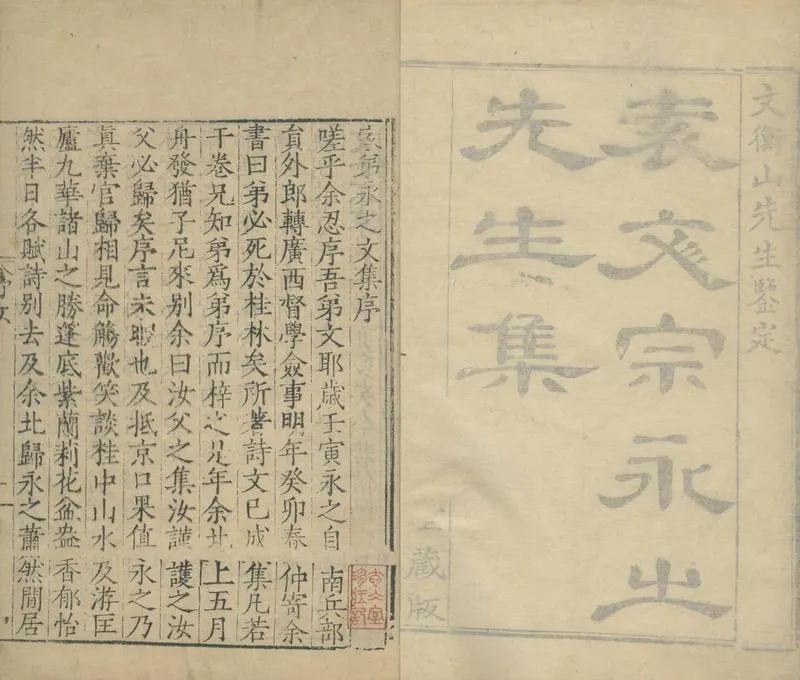 文衡山先生鑒定
袁文宗永之
先生集
藏版
家弟永之文集序
嗟乎余忍序吾弟文耶歲壬寅永之自南兵部
員外郎轉廣西督學僉事明年癸卯春仲寄余
書曰弟必死於桂林矣所著詩文已成集凡若
干卷兄知弟爲弟序而梓之是年余北上五月
舟發猶子尼來别余曰汝父之集汝謹護之汝
父必歸矣序言未暇也及抵京口果值永之乃
眞棄官歸相見命觴歡笑談桂中山水及游匡
廬九華諸山之勝蓬底紫蘭莉花盆盎香郁怡
然半日各賦詩别去及余北歸永之蕭然閒居